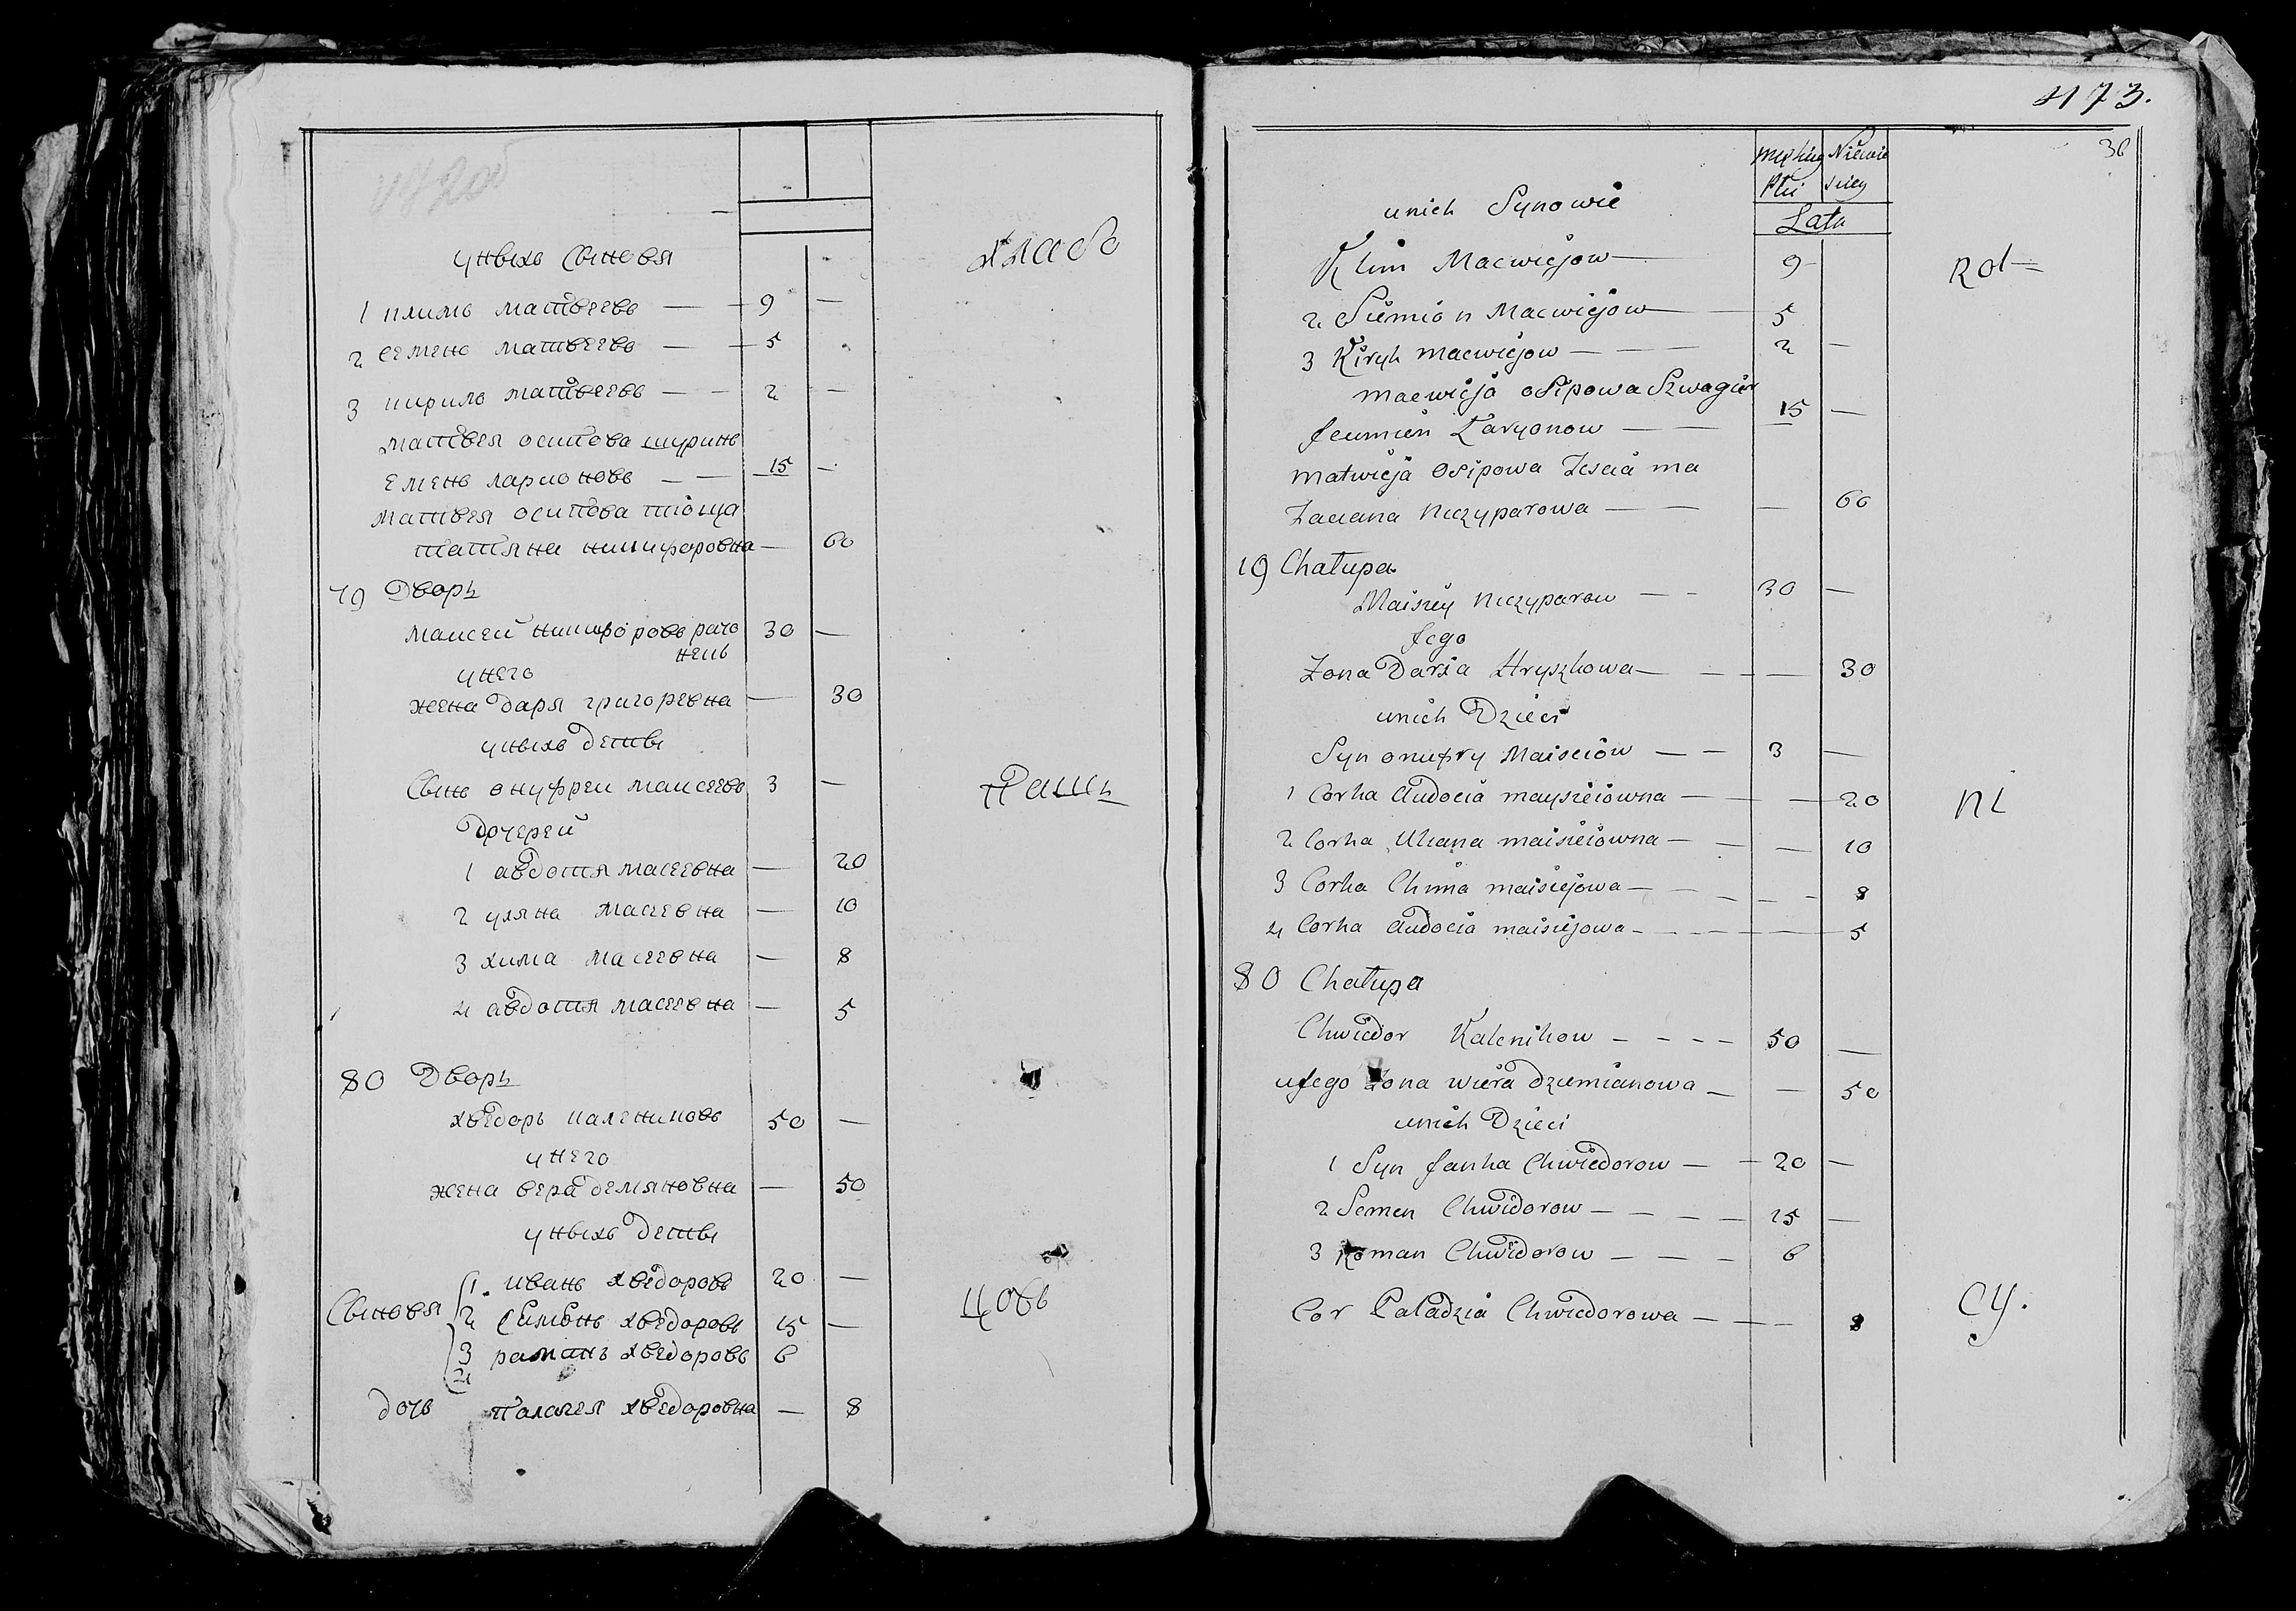 472об
унвихъ Синовя хлаба
1 климъ матвеевъ — — 9 —
2 семенъ матвеевъ — — 5
3 кирилъ матвеевъ — — 2 —
матвея осипова шуринъ
емень ларионовъ — — 15 —
матвея осипова тіоща
татяна никифоровна — 60
79 Дворъ
маисеи никифоровъ рако 30 —
нень
унего
жена даря григоревна — 30
унвихъ дети
Синъ онуфреи маисеевъ 3 — Пашъ
Дочереи
1 авдотя масеевна — 20
2 уляна масеевна — 10
3 хима масеевна — 8
4 авдотя масеевна — 5
80 Дворъ
хведоръ калениковъ 50 —
унего
жена вера демяновна — 50
унвихъ дети
Синовя 1. иванъ хведоровъ 20 — цовъ
2 Симонъ хведоровъ 15 —
3 раманъ хведоровъ 6
4
дочь палагея хведоровна — 8
473.
36
męskiey Niewie
Płci sciey
unich Synowie
Lata
Klim Macwiejow — 9 Rol—
2 Siemion Macwiejow — 5
3 Kiryk macwiejow — — 2 —
macwieja osipowa Szwagier
Jeumien Laryonow — — 15 —
matwieja Osipowa Zescia ma
Taciana Niczyparowa — — — 60
79 Chałupa
Maisiey Niczyparow — - 30 —
Jego
Zona Daria Hryszkowa — — — 30
unich Dzieci
Syn onufry Maisciow — — 3 —
1 Corka Audocia maysieiowna — — 20 ni
2 Corka Uliana maisieiowna — — — 10
3 Corka Chima maisiejowa — — - - 8
4 Corka Audocia maisiejowa - - - — 5
80 Chałupa
Chwiedor Kalenikow - - - - 50 —
uJego Zona wiera dziemianowa — — 50
unich Dzieci
1 Syn Janka Chwiedorow — — 20 —
2 Semen Chwidorow — — — — 15 —
3 Roman Chwiedorow — — — 6
Cor Paladzia Chwiedorowa — — — 8 cy.